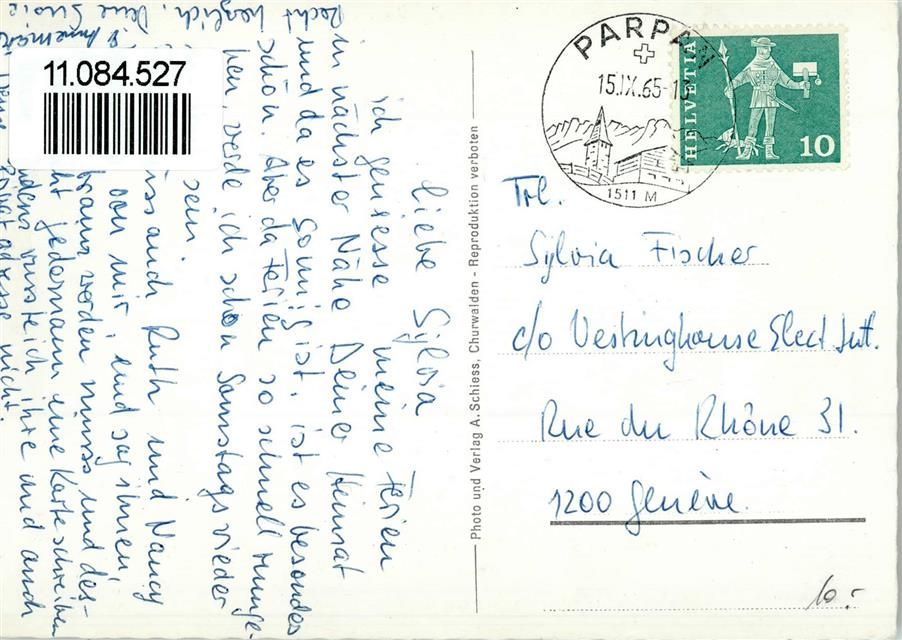 11.084.527
Recht herzlich, Deine
Annemarie
liebe Sylvia
ich geniesse meine Ferien
in nächster Nähe Deiner Heimat
und da es sonnig ist, ist es besonders
schön. Aber da Ferien so schnell
werde ich schon Samstags wieder
sein.
auch Ruth und Nancy
von mir, und sag ihnen,
braun werden muss und des-
jedermann eine Karte schreiben
wusste ich ihre und auch
nicht.
Photo und Verlag A. Schiess, Churwalden - Reproduktion verboten
PARPAN
15.IX.65-
1511 M
HELVETIA
10
Frl.
Sylvia Fischer
c/o Westinghouse Elect. Int.
Rue du Rhône 31.
1200 Genève.
10.-